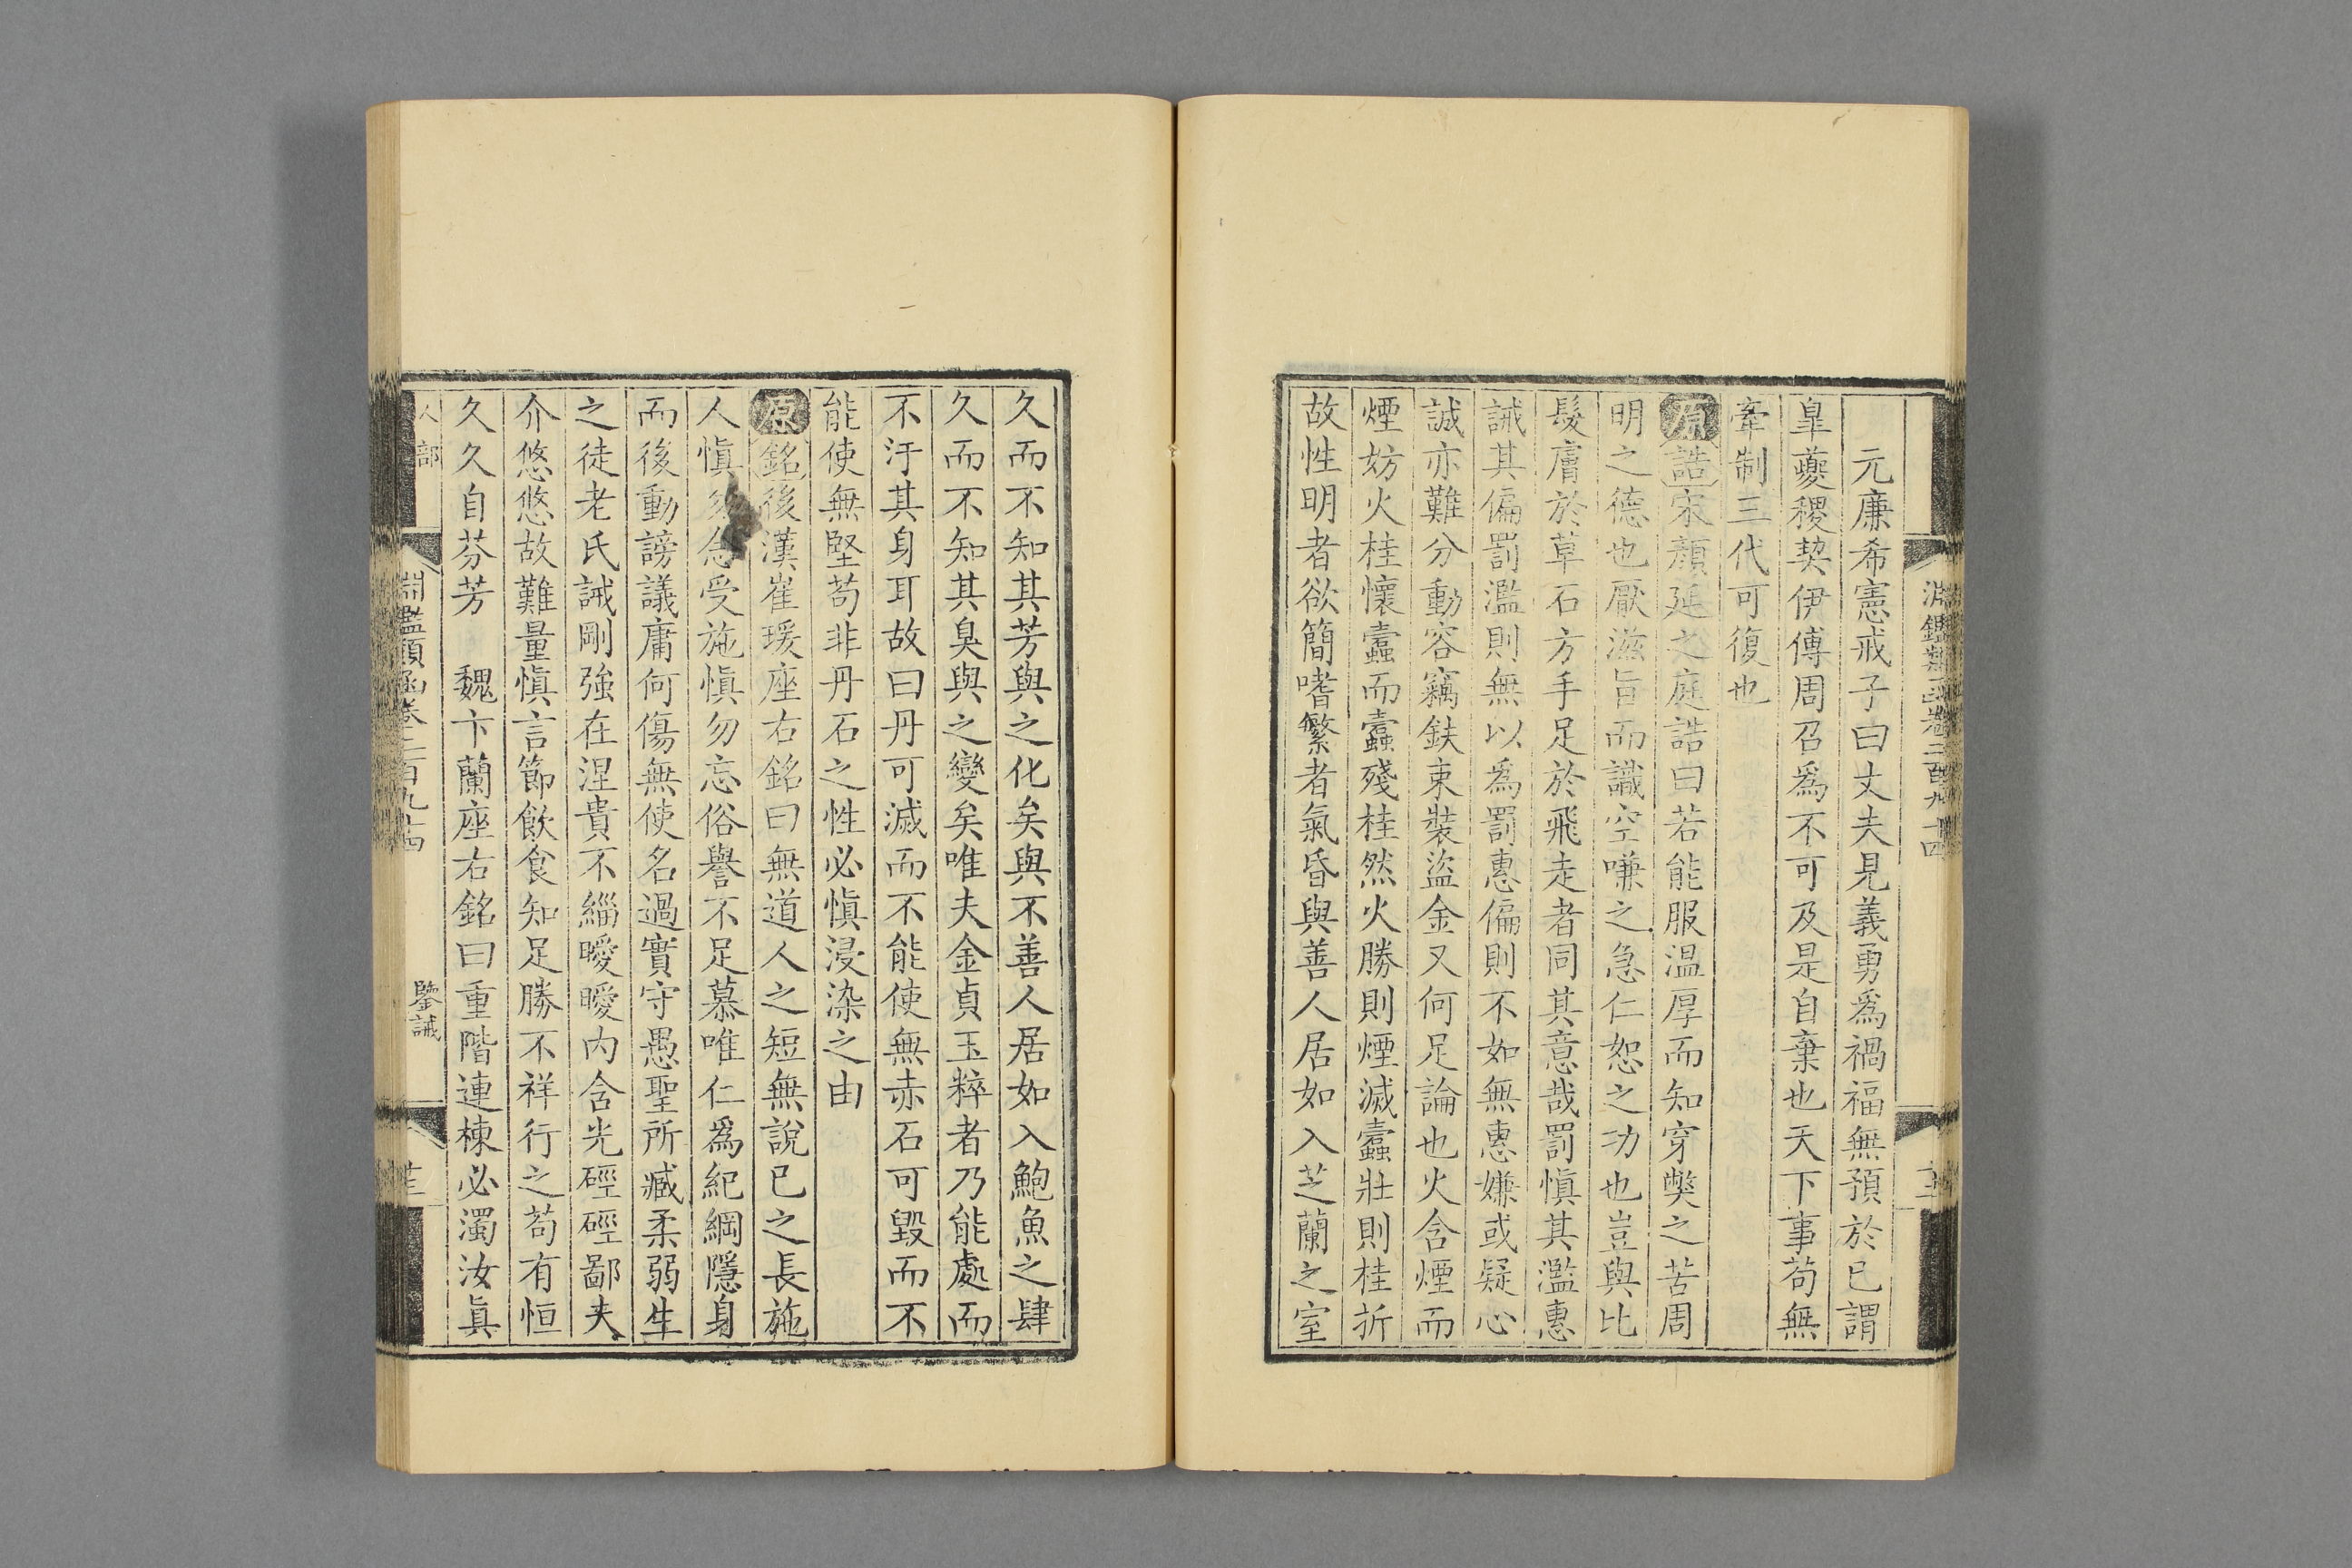 元廉希憲戒子曰丈夫見義勇爲禍福無預於己謂
臯夔稷契伊傅周召爲不可及是自棄也天下事苟無
牽制三代可復也
原誥宋顏延之庭誥曰若能服温厚而知穿弊之苦周
明之德也厭滋旨而識空嗛之急仁恕之功也豈與比
髮膚於草石方手足於飛走者同其意哉罰慎其濫惠
誡其偏罰濫則無以爲罰惠偏則不如無惠嫌或疑心
誠亦難分動容竊鈇束裝盜金又何足論也火含煙而
煙妨火桂懷蠹而蠹殘桂然火勝則煙滅蠹壯則桂折
故性明者欲簡嗜繁者氣昏與善人居如入芝蘭之室
久而不知其芳與之化矣與不善人居如入鮑魚之肆
久而不知其臭與之變矣唯夫金貞玉粹者乃能處而
不汙其身耳故曰丹可滅而不能使無赤石可毀而不
能使無堅苟非丹石之性必慎浸染之由
原銘後漢崔瑗座右銘曰無道人之短無說已之長施
人慎勿念受施慎勿忘俗譽不足慕唯仁爲紀綱隱身
而後動謗議庸何傷無使名過實守愚聖所臧柔弱生
之徒老氏誡剛強在涅貴不緇曖曖内含光硜硜鄙夫
介悠悠故難量慎言節飲食知足勝不祥行之苟有恒
久久自芬芳　魏卞蘭座右銘曰重階連棟必濁汝眞
人部
淵鑑類函卷三百九十四
鑒誡